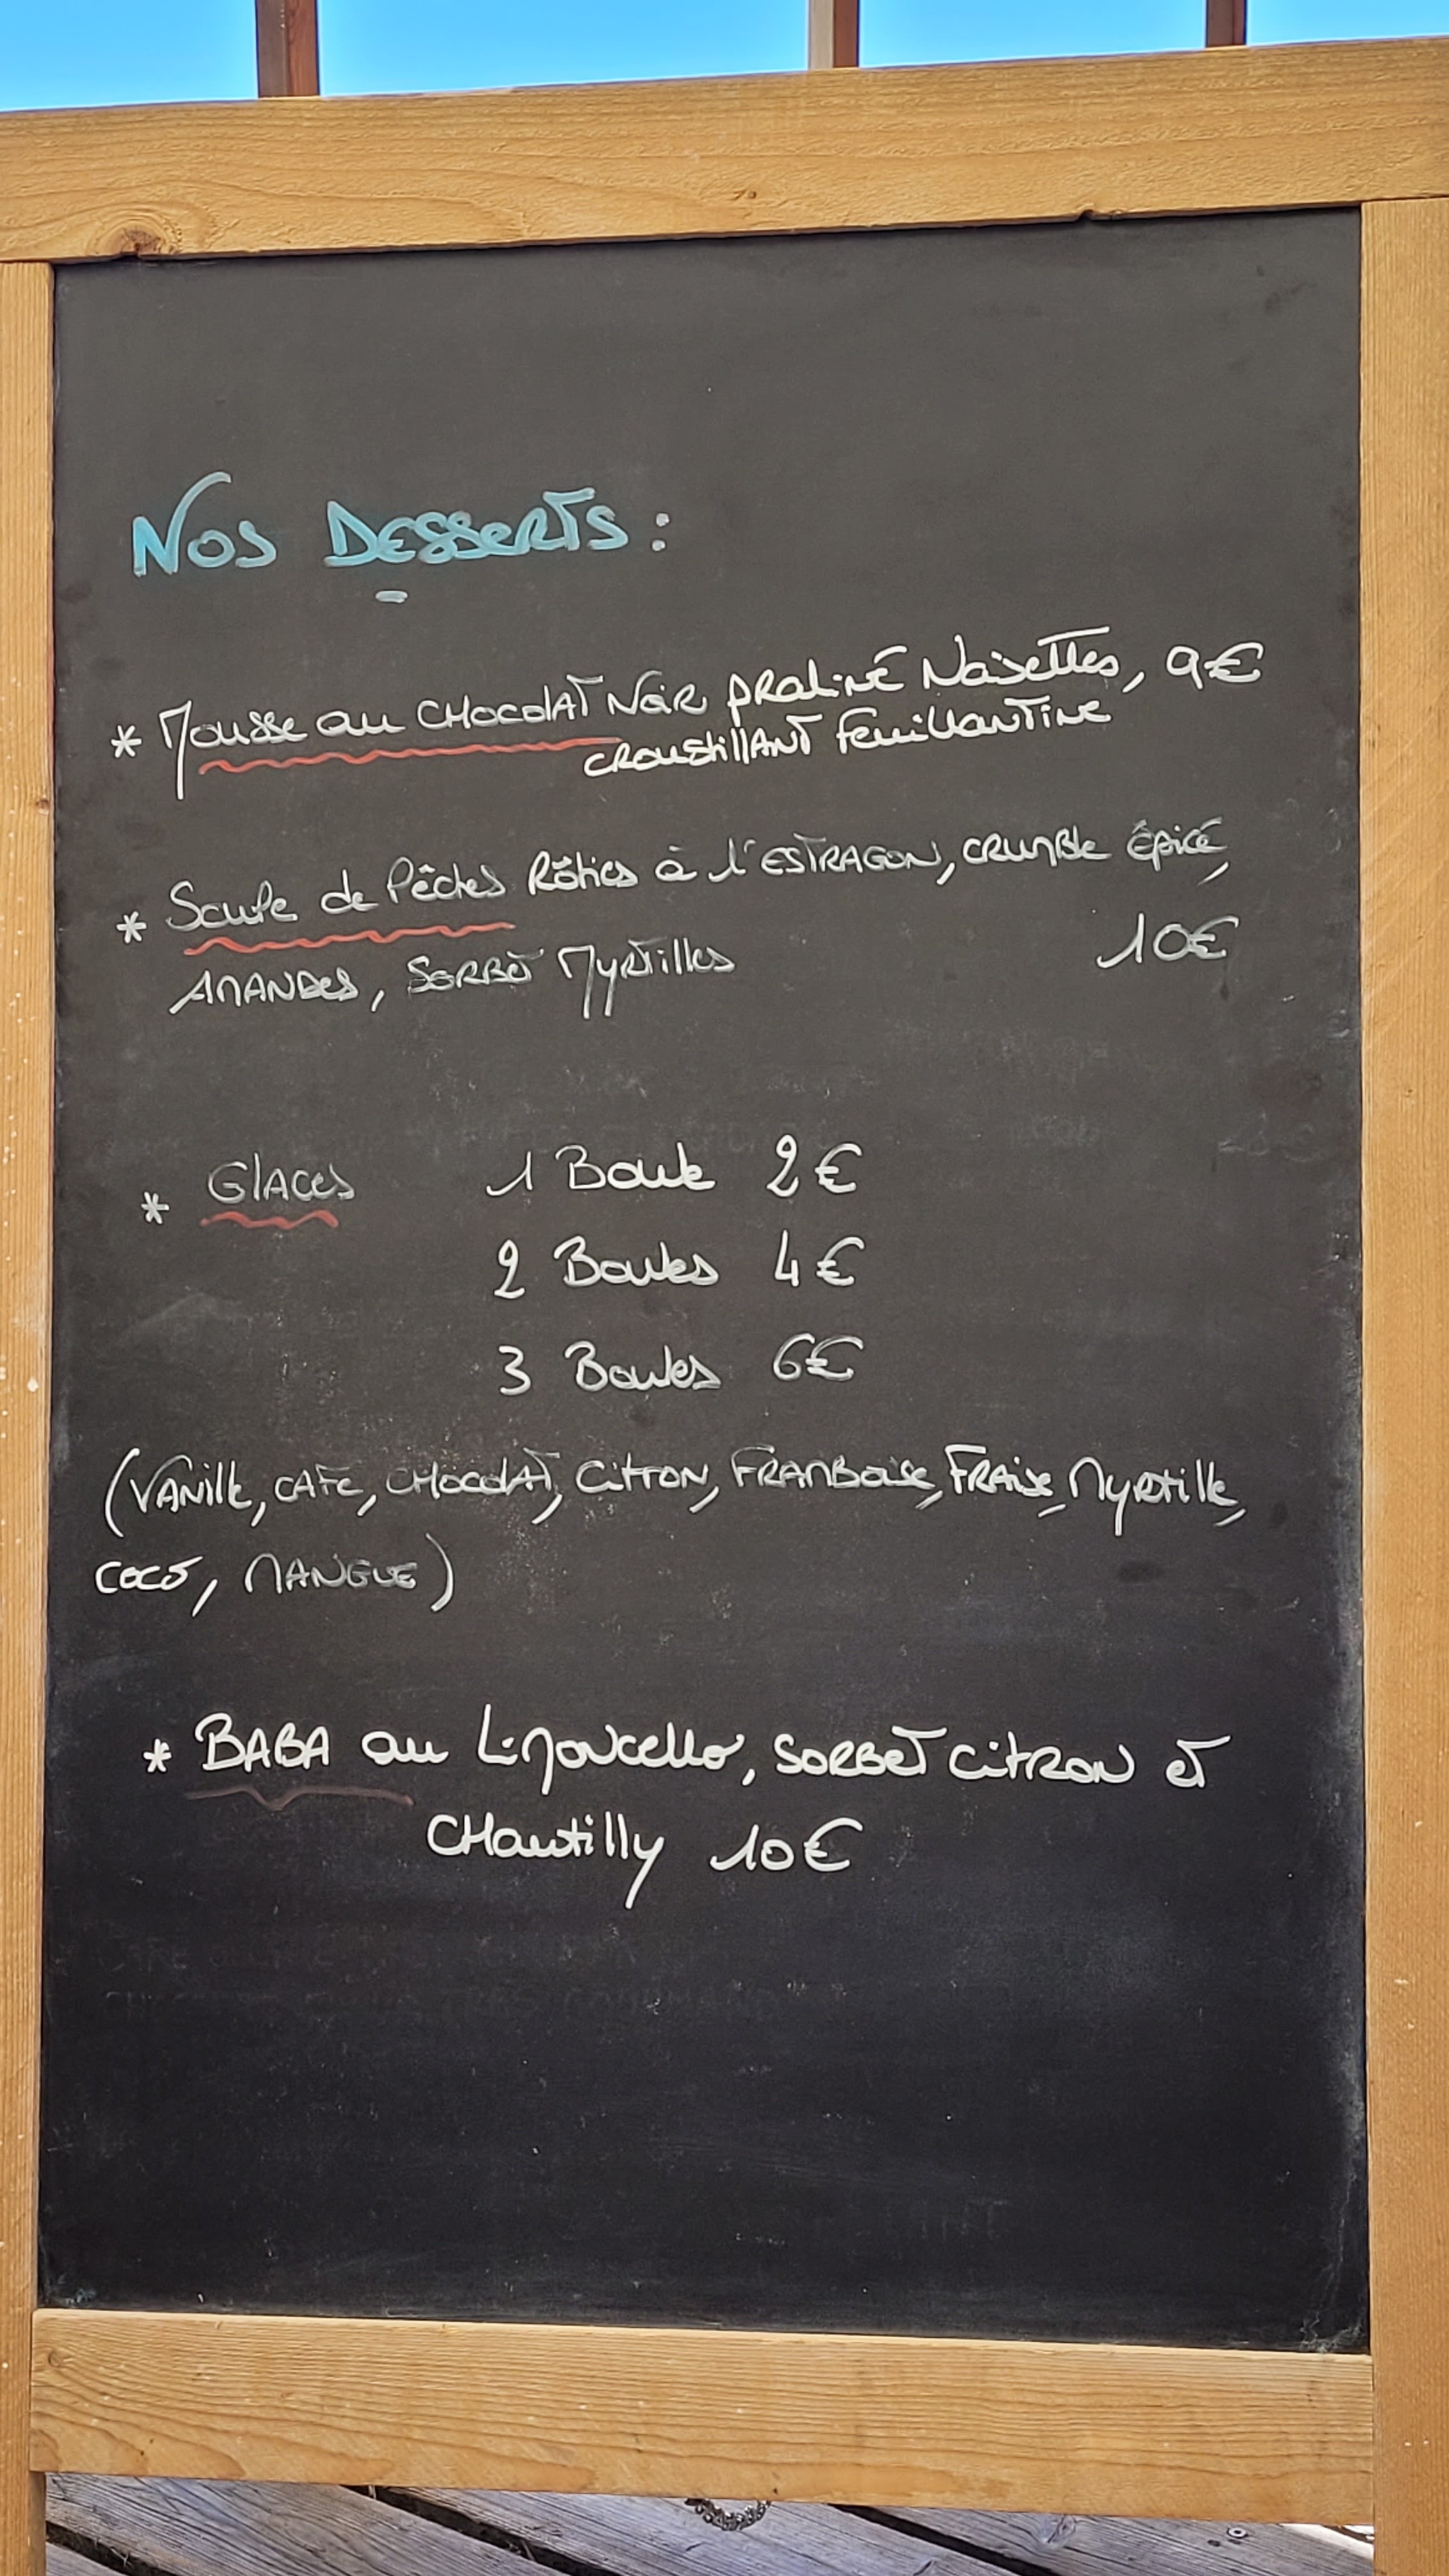 Nos Desserts :
* Mousse au CHocolat Noir praliné Noisettes, 9€
croustillant feuillantine
* Soupe de Pêches Rôties à l'ESTRAGON, crumble épicé,
AMANDES, SORBET Myrtilles 10€
* Glaces 1 Boule 2€
2 Boules 4€
3 Boules 6€
(Vanille, CAFE, CHocolat, Citron, FRAMBoise, FRAise, Myrtille,
coco, MANGUE)
* BABA au Limoncello, SORBET citron et
CHantilly 10€